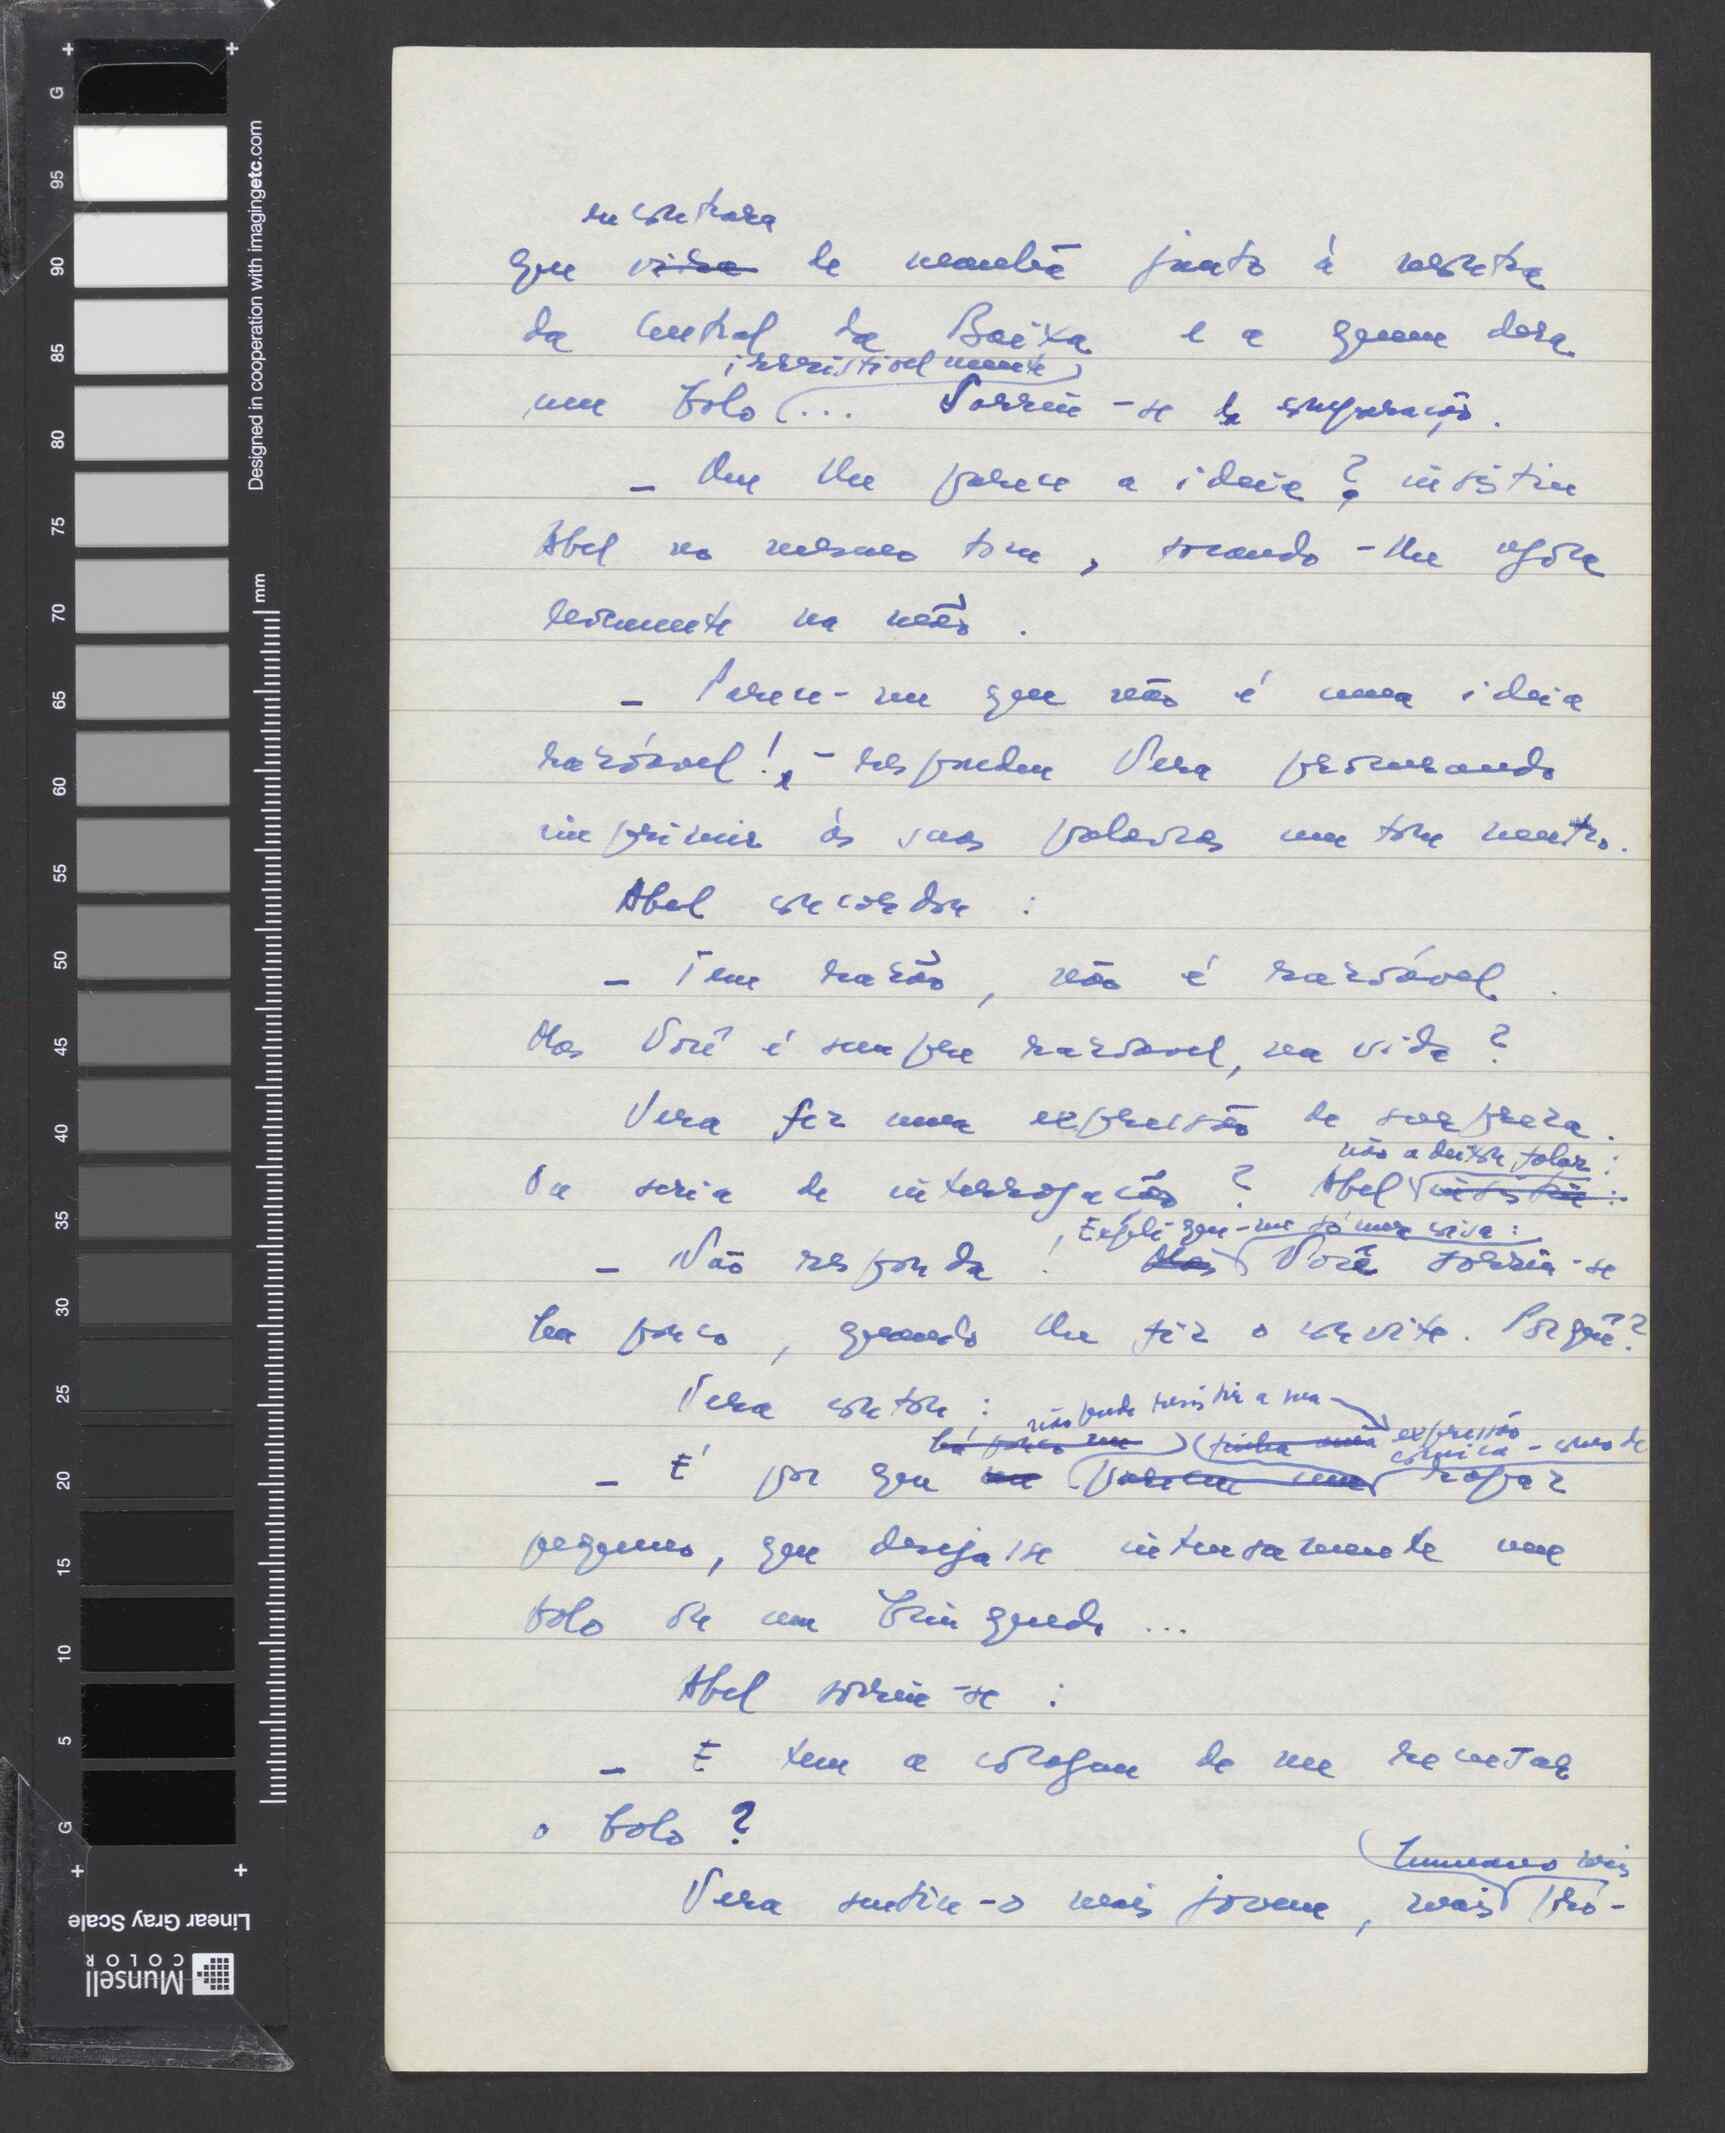 encontrara
que vira de manhã junto à montra
da Central da Baixa e a quem dera
irresistivelmente
um bolo... Sorriu-se da comparação.
- Que lhe parece a ideia? insistiu
Abel no mesmo tom, tocando-lhe agora
levemente na mão.
- Parece-me que não é uma ideia
razoável! - respondeu Vera procurando
imprimir às suas palavras um tom neutro.
Abel concordou:
- Tem razão, não é razoável.
Mas Você é sempre razoável, na vida?
Vera fez uma expressão de surpreza.
não a deixou falar:
Ou seria de interrogação? Abel insistiu:
Explique-me só uma coisa:
- Não responda! Mas Você sorriu-se
ha pouco, quando lhe fiz o convite. Porquê?
Vera contou:
não pude resistir à sua expressão
há pouco me tinha uma cómica - como de
- É por que me pareceu um rapaz
pequeno, que desejasse intensamente um
bolo ou um brinquedo...
Abel sorriu-se:
- E tem a coragem de me recusar
o bolo?
humano mais
Vera sentiu-o mais jovem, mais pró-
G
95
90
85
80
75
70
65
60
55
50
45
40
35
30
25
20
15
10
5
G
Designed in cooperation with imagingetc.com
mm
Linear Gray Scale
Munsell
COLOR